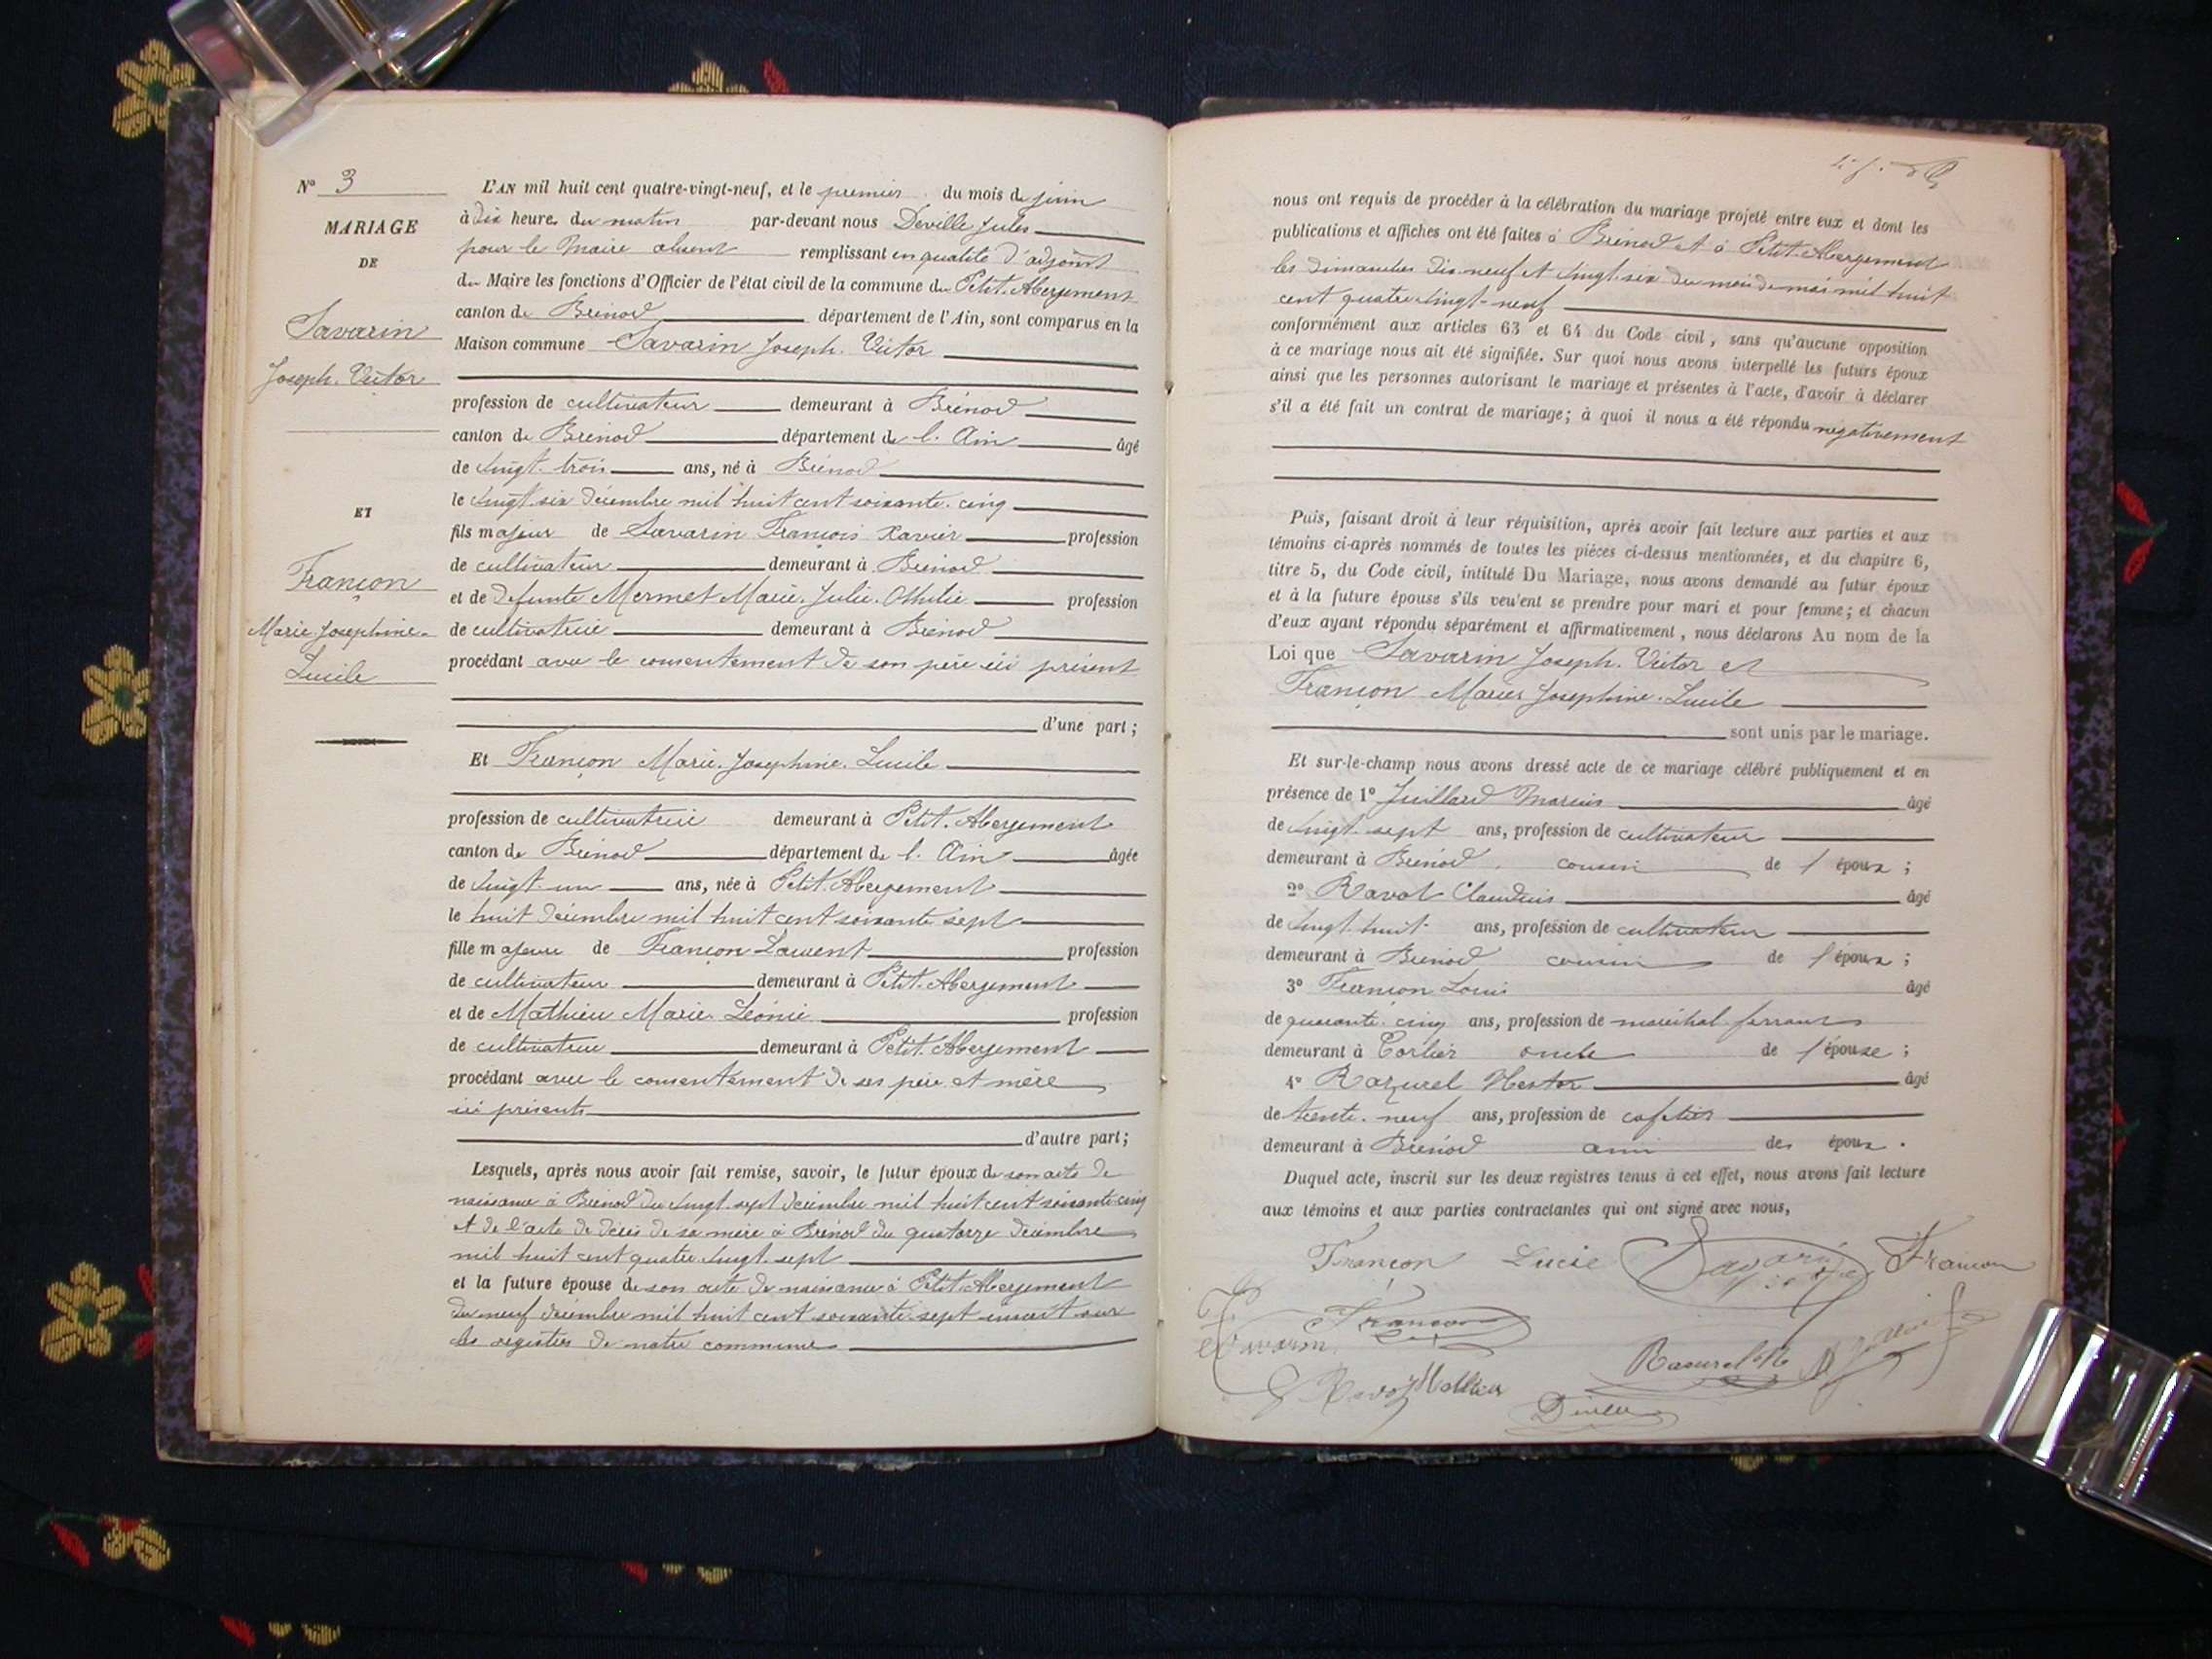 N° 3
MARIAGE
DE
Savarin
Joseph. Victor
ET
Françon
Marie Josephine
Lucile
L'AN mil huit cent quatre-vingt-neuf, et le premier du mois de juin
à dix heures du matin par-devant nous Deville Jules
pour le Maire absent remplissant en qualité d'adjoint
du Maire les fonctions d'Officier de l'état civil de la commune du Petit. Abergement
canton de Brénod département de l'Ain, sont comparus en la
Maison commune Savarin Joseph. Victor
profession de cultivateur demeurant à Brénod
canton de Brénod département de l. Ain âgé
de vingt. trois ans, né à Brénod
le vingt. six décembre mil huit cent soixante. cinq
fils majeur de Savarin François Xavier profession
de cultivateur demeurant à Brénod
et de défunte Mermet Marie. Julie. Othilie profession
de cultivatrice demeurant à Brénod
procédant avec le consentement de son père ici présent
d'une part ;
Et Françon Marie. Josephine. Lucile
profession de cultivatrice demeurant à Petit. Abergement
canton de Brénod département de l. Ain âgée
de vingt. un ans, née à Petit. Abergement
le huit décembre mil huit cent soixante sept
fille majeure de Françon Laurent profession
de cultivateur demeurant à Petit. Abergement
et de Mathieu Marie. Léonie profession
de cultivatrice demeurant à Petit. Abergement
procédant avec le consentement de ses père et mère
ici présents
d'autre part ;
Lesquels, après nous avoir fait remise, savoir, le futur époux de son acte de
naissance à Brénod du vingt. sept décembre mil huit cent soixante cinq
et de l'acte de décès de sa mère à Brénod du quatorze décembre
mil huit cent quatre. vingt. sept
et la future épouse de son acte de naissance à Petit. Abergement
du neuf décembre mil huit cent soixante. sept inscrit sur
les registres de notre commune
nous ont requis de procéder à la célébration du mariage projeté entre eux et dont les
publications et affiches ont été faites à Brénod et à Petit. Abergement
les dimanches dix. neuf et vingt. six du mois de mai mil huit
cent quatre vingt-neuf
conformément aux articles 63 et 64 du Code civil, sans qu'aucune opposition
à ce mariage nous ait été signifiée. Sur quoi nous avons interpellé les futurs époux
ainsi que les personnes autorisant le mariage et présentes à l'acte, d'avoir à déclarer
s'il a été fait un contrat de mariage; à quoi il nous a été répondu négativement
Puis, faisant droit à leur réquisition, après avoir fait lecture aux parties et aux
témoins ci-après nommés de toutes les pièces ci-dessus mentionnées, et du chapitre 6,
titre 5, du Code civil, intitulé Du Mariage, nous avons demandé au futur époux
et à la future épouse s'ils veulent se prendre pour mari et pour femme; et chacun
d'eux ayant répondu séparément et affirmativement, nous déclarons Au nom de la
Loi que Savarin Joseph. Victor et
Françon Marie Josephine. Lucile
sont unis par le mariage.
Et sur-le-champ nous avons dressé acte de ce mariage célébré publiquement et en
présence de 1° Juillard Marius âgé
de vingt. sept ans, profession de cultivateur
demeurant à Brénod cousin de l époux ;
2° Ravot Claudius âgé
de vingt. huit ans, profession de cultivateur
demeurant à Brénod cousin de l'époux ;
3° Françon Louis âgé
de quarante. cinq ans, profession de maréchal ferrant
demeurant à Corlier oncle de l'épouse ;
4° Razurel Hector âgé
de trente. neuf ans, profession de cafetier
demeurant à Brénod ami des époux .
Duquel acte, inscrit sur les deux registres tenus à cet effet, nous avons fait lecture
aux témoins et aux parties contractantes qui ont signé avec nous,
Françon Lucie Savarin Françon
Savarin Françon
Ravot Mathieu Rasurel H
Deville